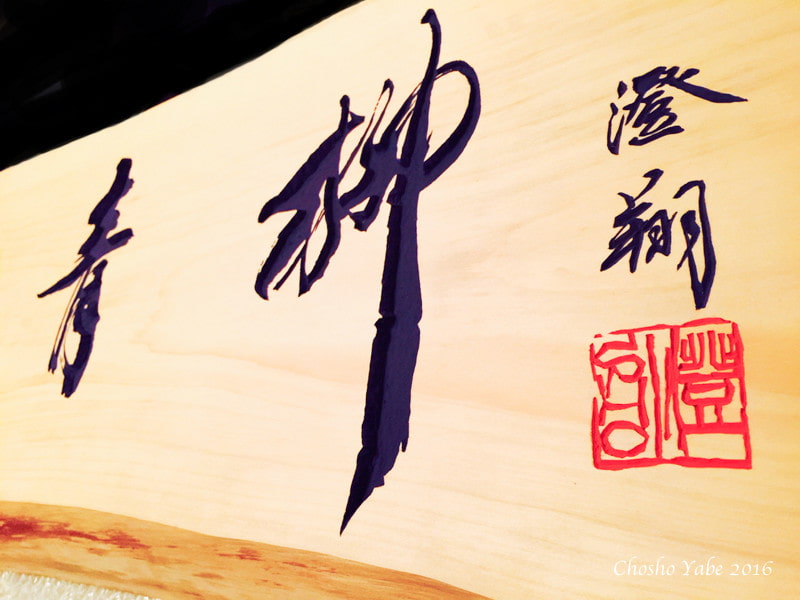 青柳
澄翔
Chosho Yabe 2016